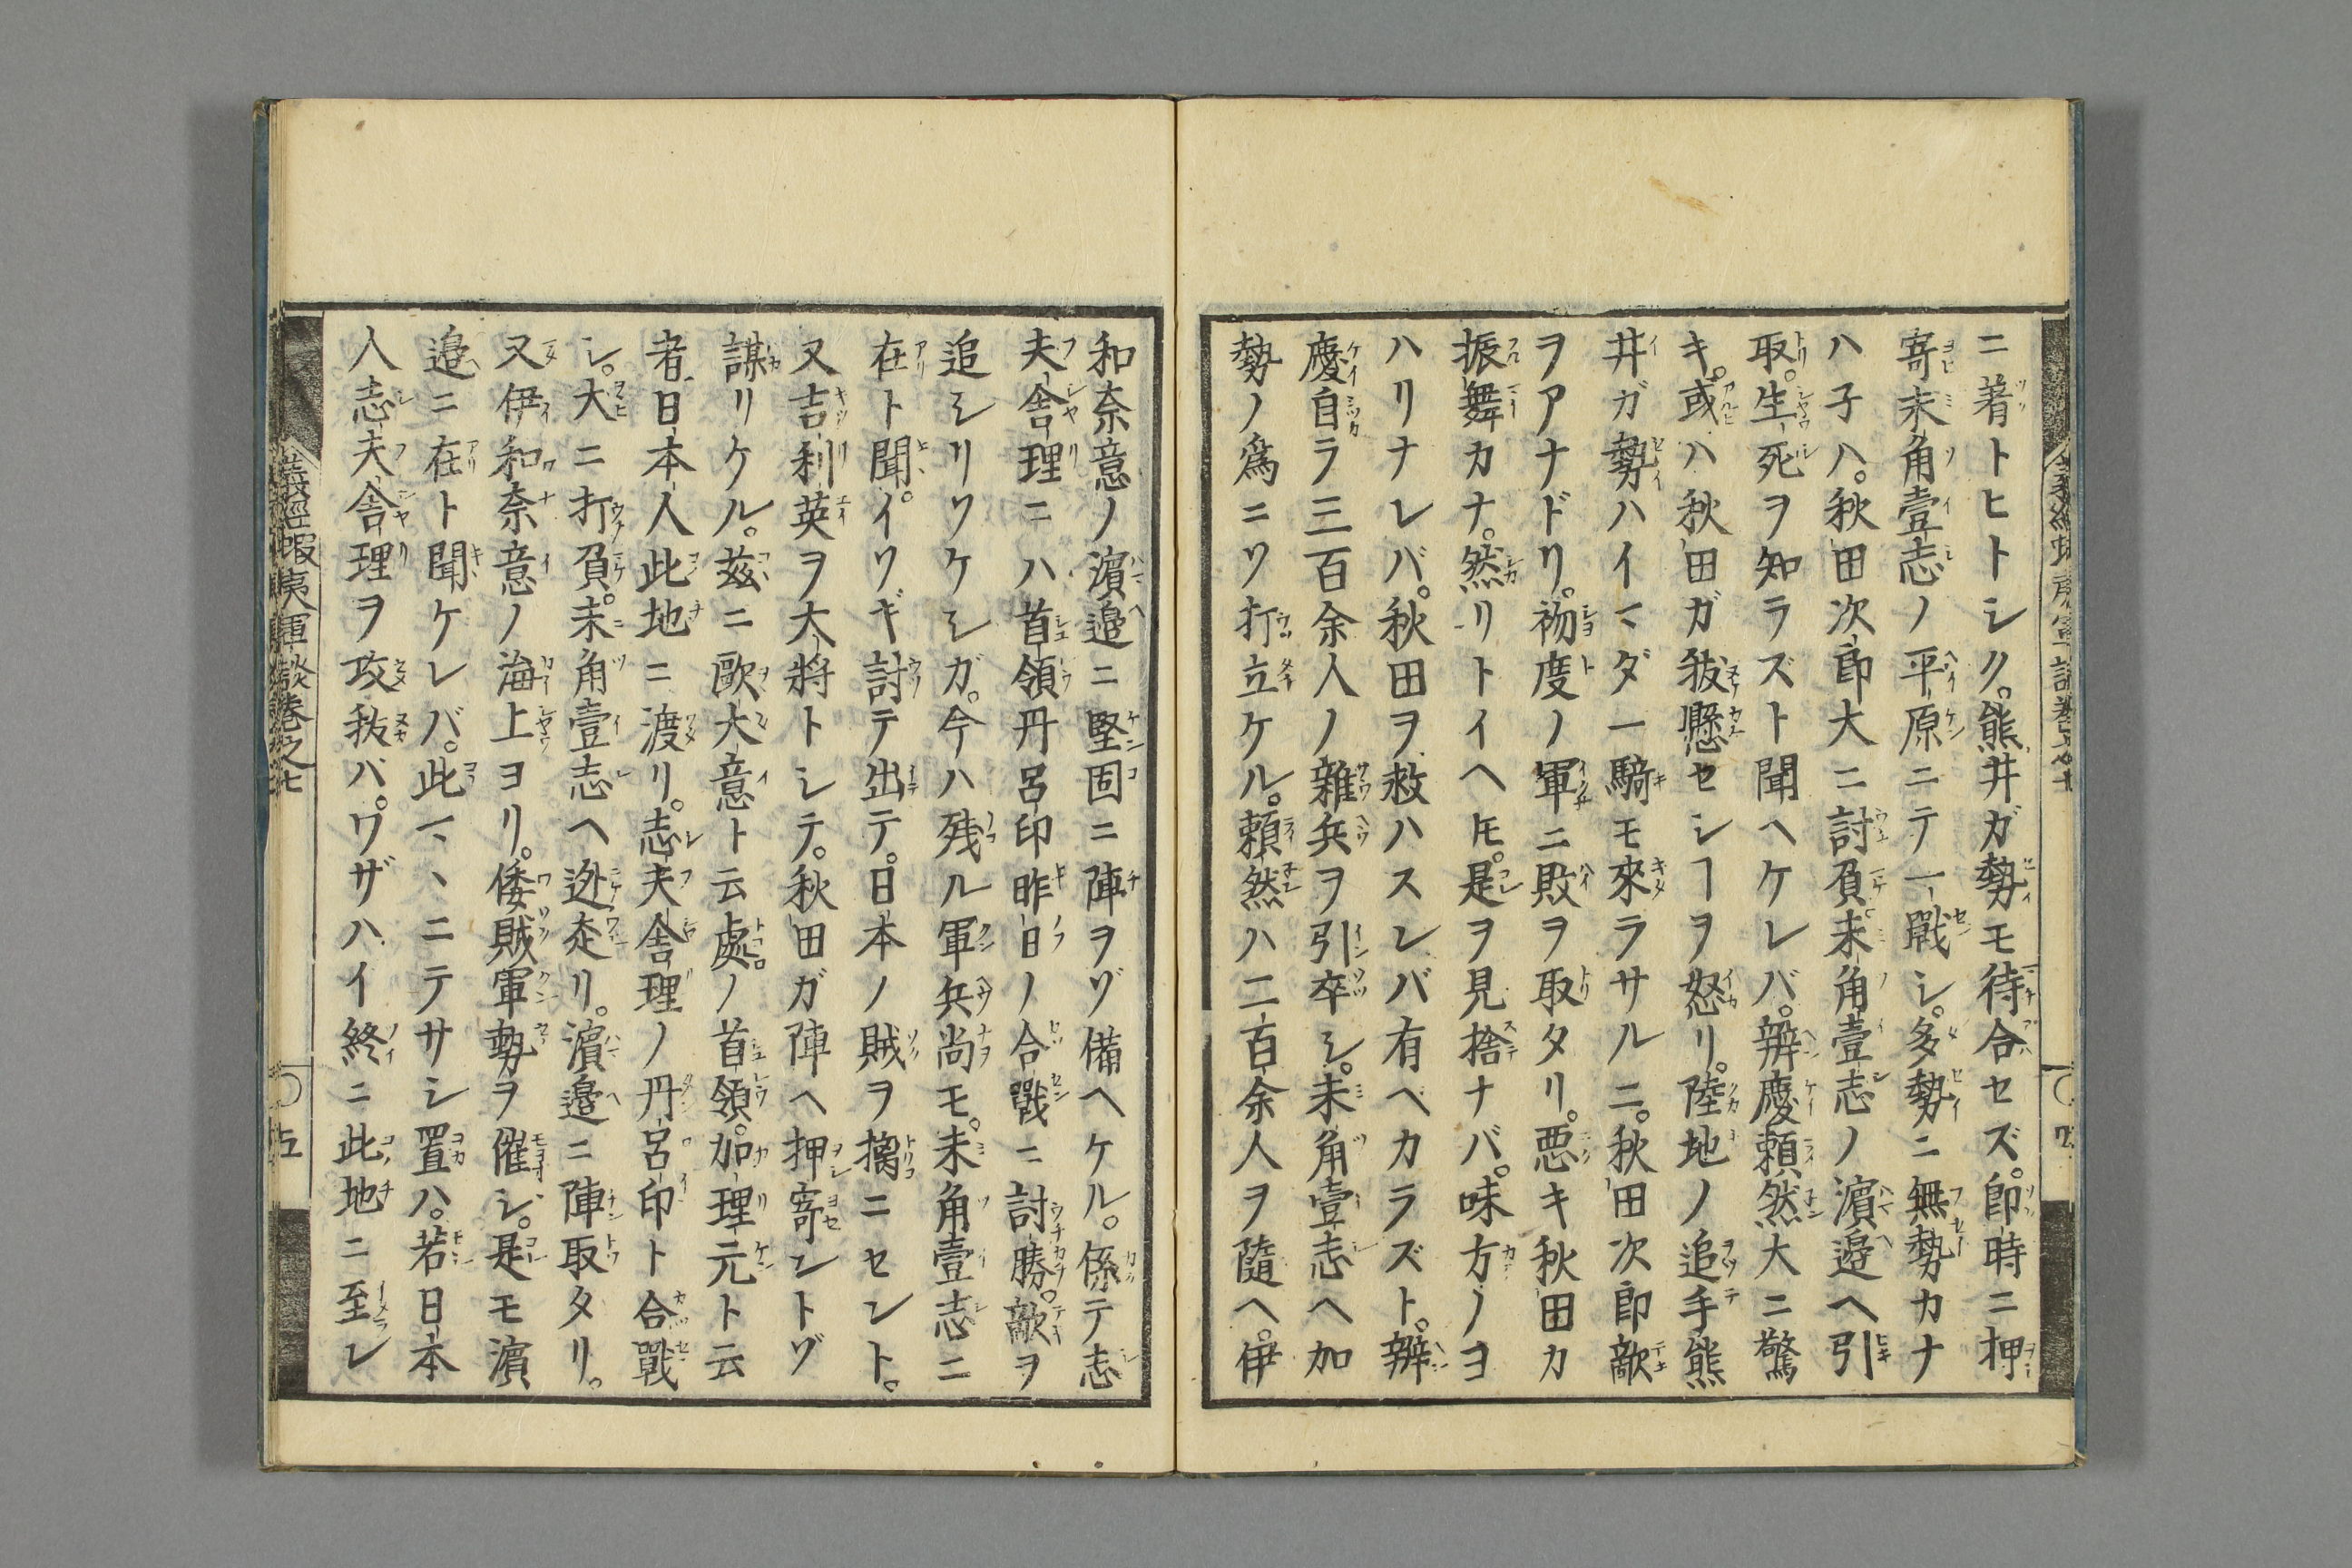 ニ着トヒトシク。熊井ガ勢モ待合セズ。即時ニ押
寄未角壹志ノ平原ニテ一戰シ。多勢ニ無勢カナ
ハ子ハ。秋田次郎大ニ討負未角壹志ノ濵邉ヘ引
取。生死ヲ知ラズト聞ヘケレバ。辨慶頼然大ニ驚
キ。或ハ秋田ガ拔懸セシヿヲ怒リ。陸地ノ追手熊
井ガ勢ハイマダ一騎モ來ラサルニ。秋田次郎敵
ヲアナドリ。初度ノ軍ニ敗ヲ取タリ。悪キ秋田カ
振舞カナ。然リトイヘ𪜈。是ヲ見捨ナバ。味方ノヨ
ハリナレバ。秋田ヲ救ハスレバ有ベカラズト。辨
慶自ラ三百余人ノ雜兵ヲ引卒シ。未角壹志ヘ加
勢ノ爲ニツ打立ケル。頼然ハ二百余人ヲ隨ヘ。伊
和奈意ノ濵邉ニ堅固ニ陣ヲゾ備ヘケル。係テ志
夫舎理ニハ首領丹呂印昨日ノ合戰ニ討勝。敵ヲ
追シリゾケシガ。今ハ残ル軍兵尚モ。未角壹志ニ
在ト聞。イソギ討テ出テ。日本ノ賊ヲ擒ニセント。
又吉利英ヲ大將トシテ。秋田ガ陣ヘ押寄ントゾ
謀リケル。茲ニ歐大意ト云處ノ首領。加理元ト云
者。日本人此地ニ渡リ。志夫舎理ノ丹呂印ト合戰
シ。大ニ打負。未角壹志ヘ迯走リ。濵邉ニ陣取タリ。
又伊和奈意ノ海上ヨリ。倭賊軍勢ヲ催シ。是モ濵
邉ニ在ト聞ケレバ。此マヽニテサシ置ハ。若日本
人志夫舎理ヲ攻拔バ。ワザハイ終ニ此地ニ至レ
義經蝦夷軍談巻之七
五